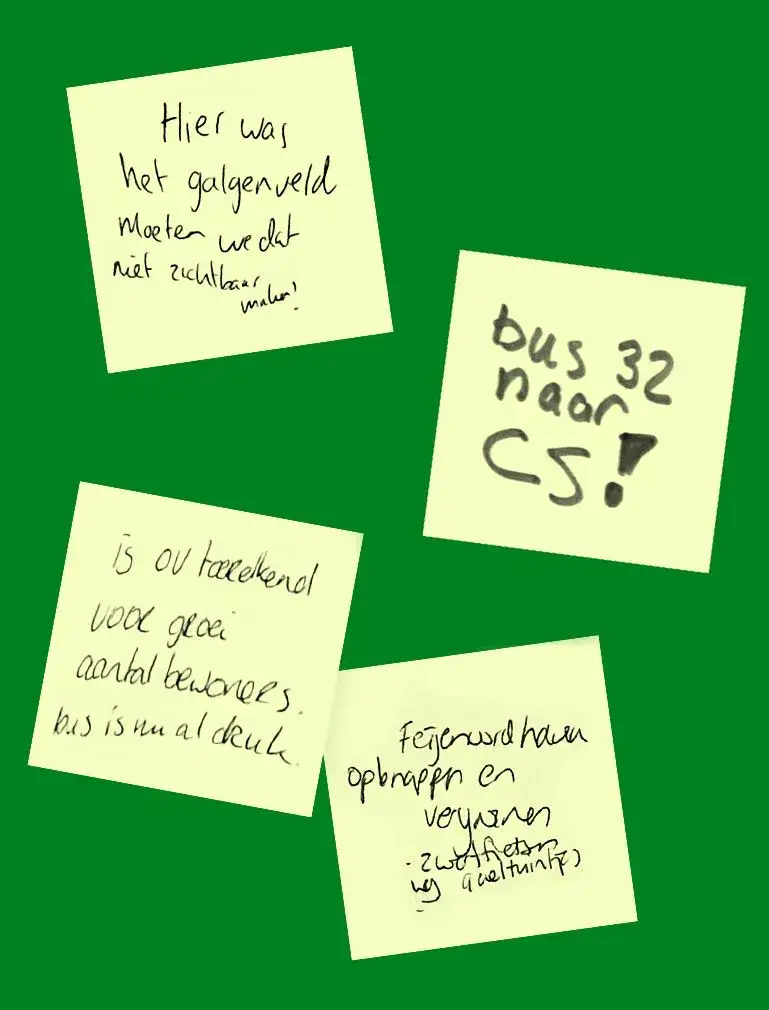 Hier was
het galgenveld
Moeten we dat
niet zichtbaar
maken!
bus 32
naar
CS!
is OV toereikend
voor groei
aantal bewoners.
bus is nu al druk.
Feijenoord haven
opknappen en
vergroenen
weg